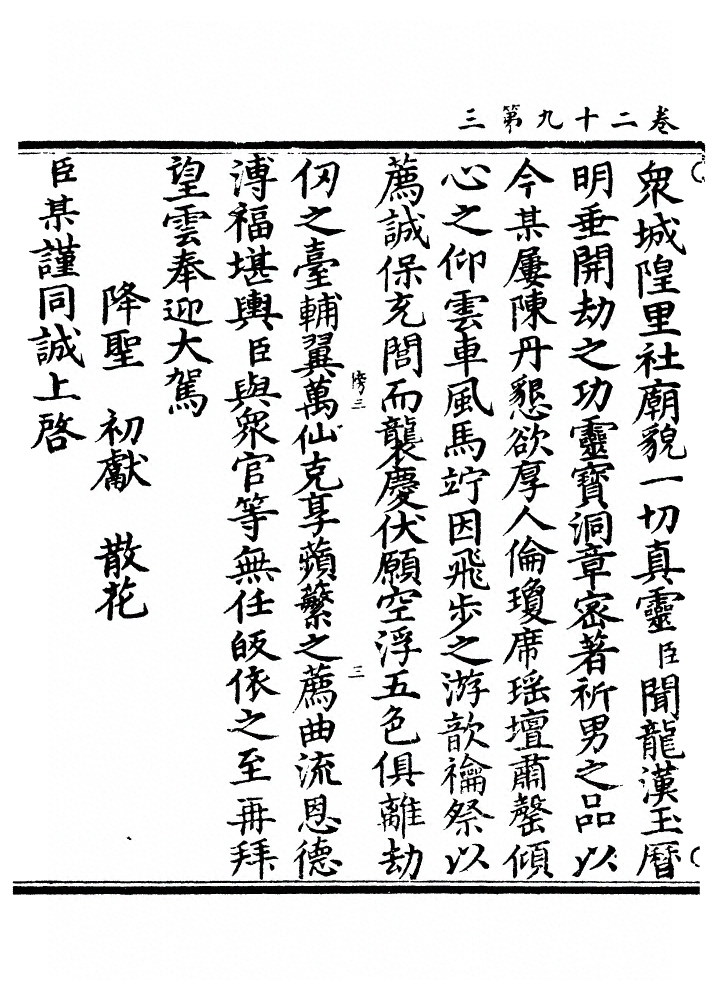 卷二十九第三
衆城隍里社廟貌一切真靈臣聞龍漢玉曆
明垂開劫之功靈寶洞章密著祈男之品以
今某屢陳丹懇欲厚人倫瓊席瑶壇肅馨傾
心之仰雲車風馬竚因飛步之游歆禴祭以
薦誠保充閭而襲慶伏願空浮五色俱離劫
仞之臺輔翼萬仙克享蘋蘩之薦曲流恩德
溥福堪輿臣與衆官等無任皈依之至再拜
望雲奉迎大駕
降聖　初獻　散花
臣某謹同誠上啓
三